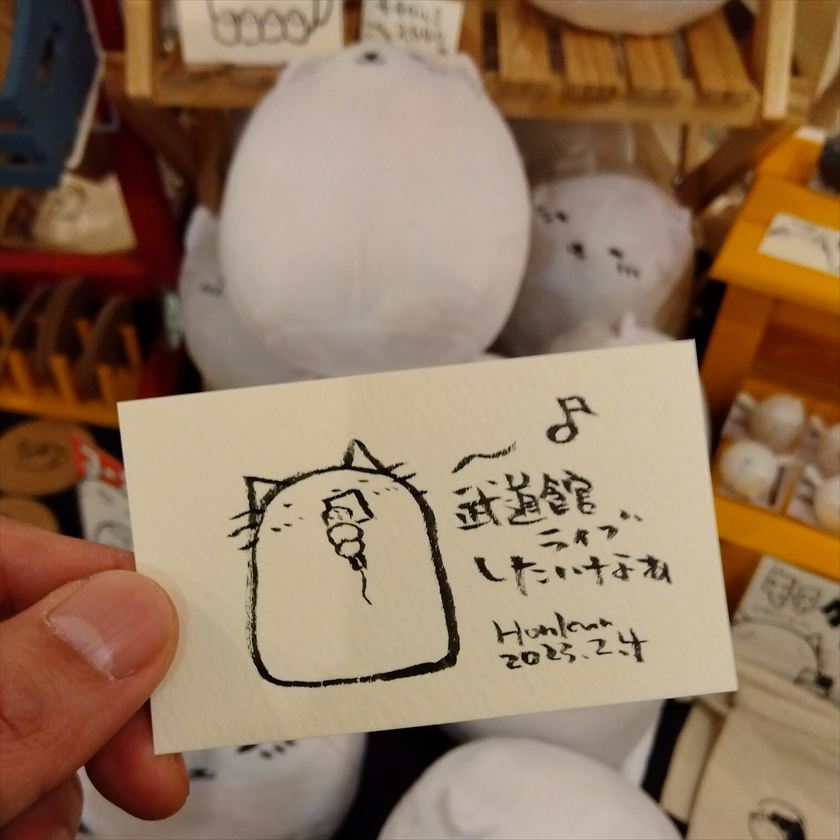 武道館
ライブ
したいなあ
2023.2.4